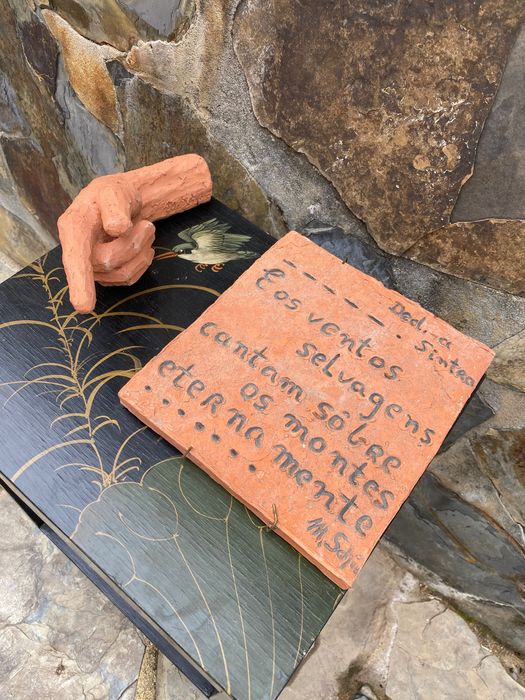 Ded. a
- - - - - - . Sintra
E os ventos
selvagens
cantam sôbre
os montes
eterna mente
. . . . . . . .